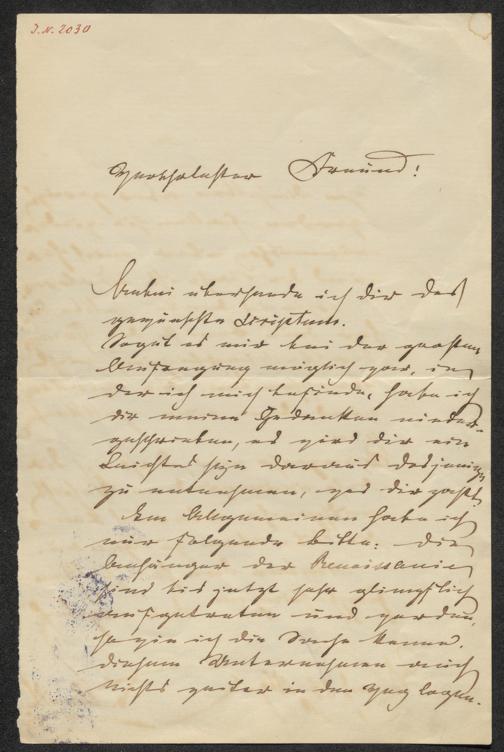 J.N. 2030
Hochgeehrter Freund!
Anbei übersende ich dir das
gewünschte Scriptum.
Sogut es mir bei der großen
Aufregung möglich war, in
der ich mich befinde, habe ich
dir meine Gedanken nieder-
geschrieben, es wird dir ein
Leichtes sein daraus dasjenige
zu entnehmen, was dir paßt.
Im Allgemeinen habe ich
nur folgende Bitte: Die
Anhänger der Renaissance
sind bis jetzt sehr glimpflich
aufgetreten und werden,
so wie ich die Sache kenne,
diesem Unternehmen auch
nichts weiter in den Weg legen.